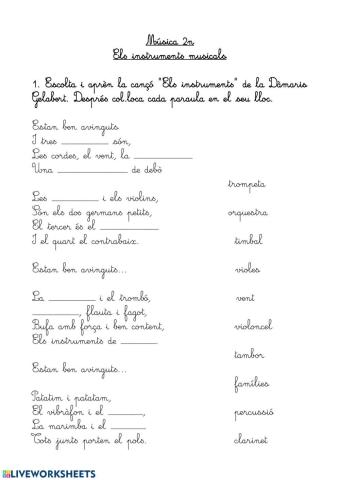 Música 2n
Els instruments musicals
1. Escolta i aprèn la cançó "Els instruments" de la Dàmaris
Gelabert. Després col.loca cada paraula en el seu lloc.
Estan ben avinguts.
I tres __________ són,
Les cordes, el vent, la ____________
Una ______________ de debò
trompeta
Les ________ i els violins,
Són els dos germans petits,
orquestra
El tercer és el ____________
I el quart el contrabaix.
timbal
Estan ben avinguts...
violes
La __________ i el trombó,
vent
__________, flauta i fagot,
Bufa amb força i ben content,
violoncel
Els instruments de ________
tambor
Estan ben avinguts...
famílies
Patatim i patatam,
El vibràfon i el ________,
percussió
La marimba i el ________
Tots junts porten el pols.
clarinet
LIVEWORKSHEETS